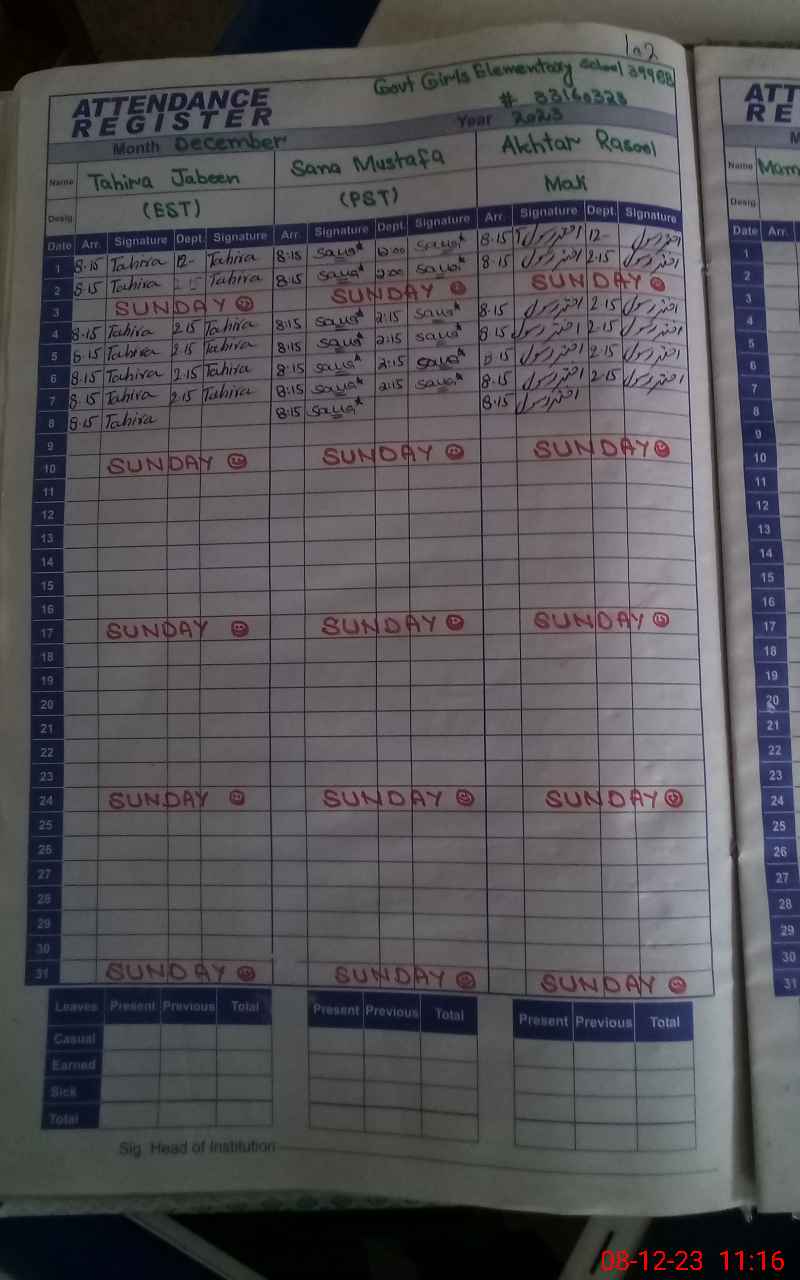 1a2
Govt Girls Elementary School 399GB
# 33160323
ATTENDANCE
REGISTER
Year 2023
Month December
Name Tahira Jabeen Sana Mustafa Akhtar Rasool
Desig. (EST) (PST) Mali
Date Arr. Signature Dept. Signature Arr. Signature Dept. Signature Arr. Signature Dept. Signature
1 8.15 Tahira 12- Tahira 8:15 Sana 12:00 Sana 8.15 اختر رسول 12- اختر رسول
2 8.15 Tahira 2.15 Tahira 8:15 Sana Sana 8.15 اختر رسول 2.15 اختر رسول
3 SUNDAY SUNDAY SUNDAY
4 8.15 Tahira 2.15 Tahira 8:15 Sana 2:15 Sana 8.15 اختر رسول 2.15 اختر رسول
5 8.15 Tahira 2.15 Tahira 8:15 Sana 2:15 Sana 8.15 اختر رسول 2.15 اختر رسول
6 8.15 Tahira 2.15 Tahira 8:15 Sana 2:15 Sana 8.15 اختر رسول 2.15 اختر رسول
7 8.15 Tahira 2.15 Tahira 8:15 Sana 2:15 Sana 8.15 اختر رسول 2.15 اختر رسول
8 8.15 Tahira 8:15 Sana 8.15 اختر رسول
9
10 SUNDAY SUNDAY SUNDAY
11
12
13
14
15
16
17 SUNDAY SUNDAY SUNDAY
18
19
20
21
22
23
24 SUNDAY SUNDAY SUNDAY
25
26
27
28
29
30
31 SUNDAY SUNDAY SUNDAY
Leaves Present Previous Total Present Previous Total Present Previous Total
Casual
Earned
Sick
Total
Sig. Head of Institution
ATT
RE
M
Name Mam
Desig.
Date Arr.
1
2
3
4
5
6
7
8
9
10
11
12
13
14
15
16
17
18
19
20
21
22
23
24
25
26
27
28
29
30
31
08-12-23 11:16